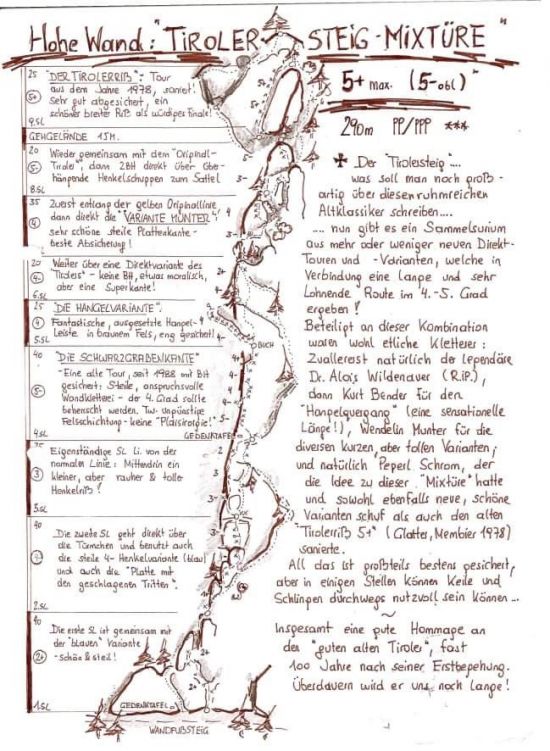 Hohe Wand: "TIROLERSTEIG-MIXTÜRE"
5+ max. (5- obl)
290m PP/PPP ***
25 "DER TIROLERRIß": Tour
aus dem Jahre 1978, saniert!
Sehr gut abgesichert, ein
schöner breiter Riß als würdiges Finale!
5+
9.SL
GEHGELÄNDE 15M.
20 Wieder gemeinsam mit dem "Original-
Tiroler", dann 2BH direkt über über-
hängende Henkelschuppen zum Sattel
5-
8.SL
35 Zuerst entlang der gelben Originallinie
dann direkt die "VARIANTE MUNTER".
sehr schöne steile Plattenkante -
beste Absicherung!
4
20 Weiter über eine Direktvariante des
"Tirolers" - keine BH, etwas moralisch,
aber eine Superkante!
4-
6.SL
25 "DIE HANGELVARIANTE".
Fantastische, ausgesetzte Hangel-
leiste in braunem Fels, eng gesichert!
4
5.SL
BUCH
40 "DIE SCHWARZGRABENKANTE"
- Eine alte Tour, seit 1988 mit BH
gesichert: Steile, anspruchsvolle
Wandkletterei - der 4. Grad sollte
beherrscht werden. Tw. ungünstige
Felsschichtung - keine "Plaisirorgie"!
5-
4.SL
GEDENKTAFEL
Eigenständige SL li. von der
normalen Linie: Mittendrin ein
kleiner, aber rauher & toller
Henkelriß!
3
40
Die zweite SL geht direkt über
die Türmchen und benutzt auch
die steile 4- Henkelvariante (blau)
und auch die "Platte mit
den geschlagenen Tritten".
2.SL
40
Die erste SL ist gemeinsam mit
der "blauen" Variante
- schön & steil!
2+
1.SL
GEDENKTAFEL
WANDFUßSTEIG
Der "Tirolersteig"....
was soll man noch groß-
artig über diesen ruhmreichen
Altklassiker schreiben....
.... nun gibt es ein Sammelsurium
aus mehr oder weniger neuen Direkt-
Touren und -Varianten, welche in
Verbindung eine lange und sehr
lohnende Route im 4.-5. Grad
ergeben!
Beteiligt an dieser Kombination
waren wohl etliche Kletterer:
Zuallererst natürlich der legendäre
Dr. Alois Wildenauer (R.i.P.),
dann Kurt Bender für den
"Hangelquergang" (eine sensationelle
Länge!), Wendelin Munter für die
diversen kurzen, aber tollen Varianten,
und natürlich Peperl Schrom, der
die Idee zu dieser "Mixtüre" hatte
und sowohl ebenfalls neue, schöne
Varianten schuf als auch den alten
"Tirolerriß 5+" (Glatter, Membier 1978)
sanierte.
All das ist großteils bestens gesichert,
aber in einigen Stellen können Keile und
Schlingen durchwegs nutzvoll sein können...
~
Insgesamt eine gute Hommage an
den "guten alten Tiroler", fast
100 Jahre nach seiner Erstbegehung.
Überdauern wird er uns noch lange!